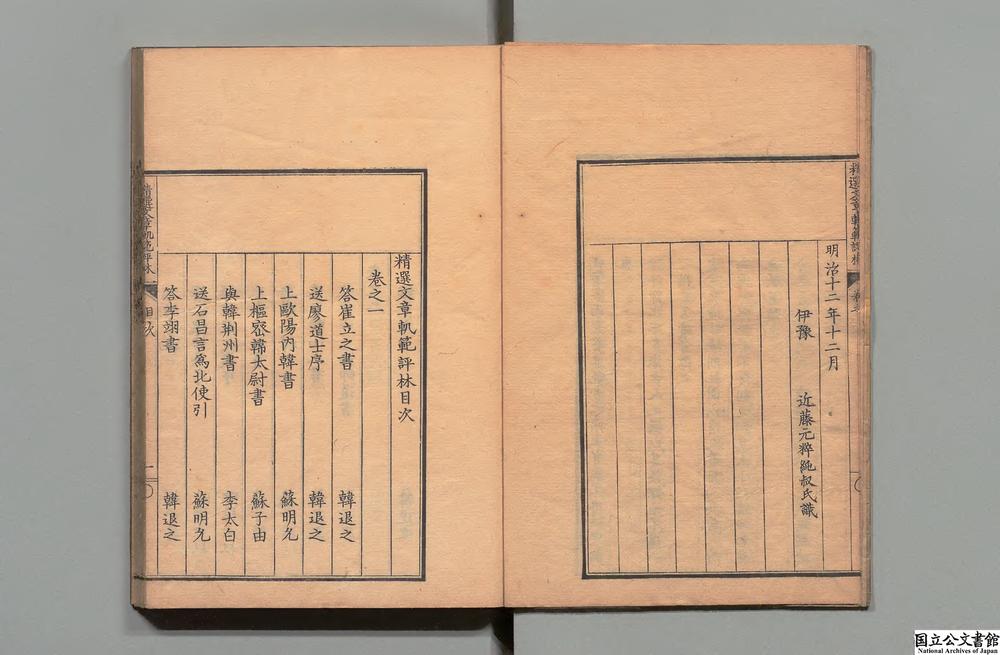 精選文章軌範評林
明治十二年十二月
伊豫　近藤元粹純叔氏識
精選文章軌範評林目次
卷之一
答崔立之書　韓退之
送廖道士序　韓退之
上歐陽內韓書　蘇明允
上樞密韓太尉書　蘇子由
與韓荊州書　李太白
送石昌言爲北使引　蘇明允
答李翊書　韓退之
精選文章軌範評林
目次
一
国立公文書館
National Archives of Japan